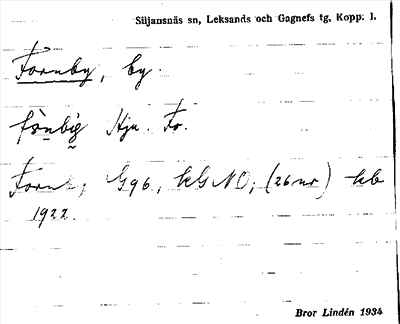 Siljansnäs sn, Leksands och Gagnefs tg, Kopp. l.
Fornby, by.
fò̱nbi̱g Hju. Fo.
Forn, G96, kG NO; (26 nr) kb
1922.
Bror Lindén 1934